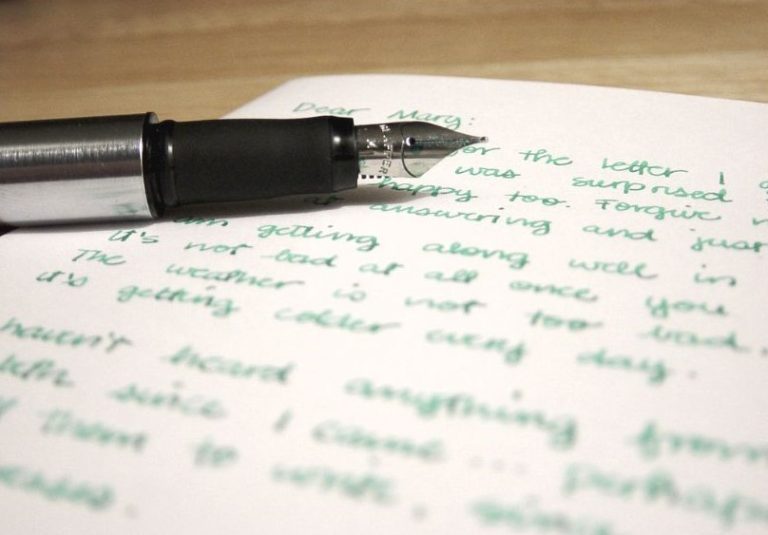 Dear Mary:
for the letter I
was surprised
happy too. Forgive
at answering and just
am getting along well in
It's not bad at all once you
The weather is not too bad.
it's getting colder every day.
haven't heard anything from
since I came... perhaps
them to write. since